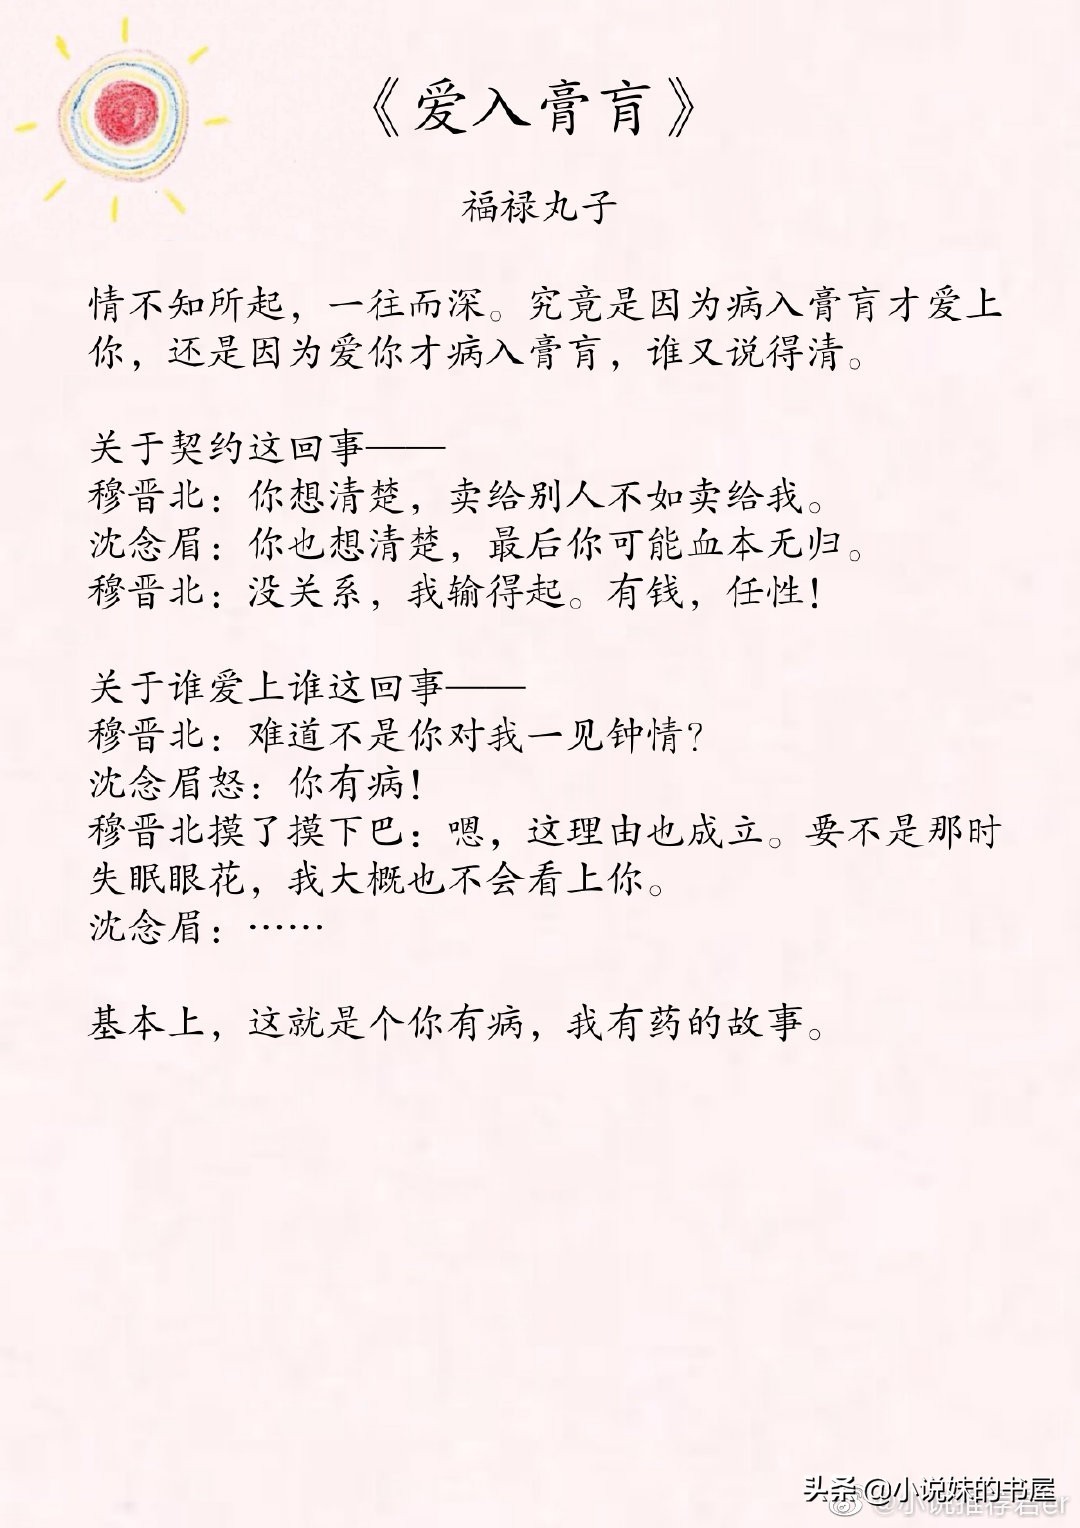 《爱入膏肓》
福禄丸子
情不知所起，一往而深。究竟是因为病入膏肓才爱上
你，还是因为爱你才病入膏肓，谁又说得清。
关于契约这回事——
穆晋北：你想清楚，卖给别人不如卖给我。
沈念眉：你也想清楚，最后你可能血本无归。
穆晋北：没关系，我输得起。有钱，任性！
关于谁爱上谁这回事——
穆晋北：难道不是你对我一见钟情？
沈念眉怒：你有病！
穆晋北摸了摸下巴：嗯，这理由也成立。要不是那时
失眠眼花，我大概也不会看上你。
沈念眉：……
基本上，这就是个你有病，我有药的故事。
头条 @小说妹的书屋
@小说推荐君er